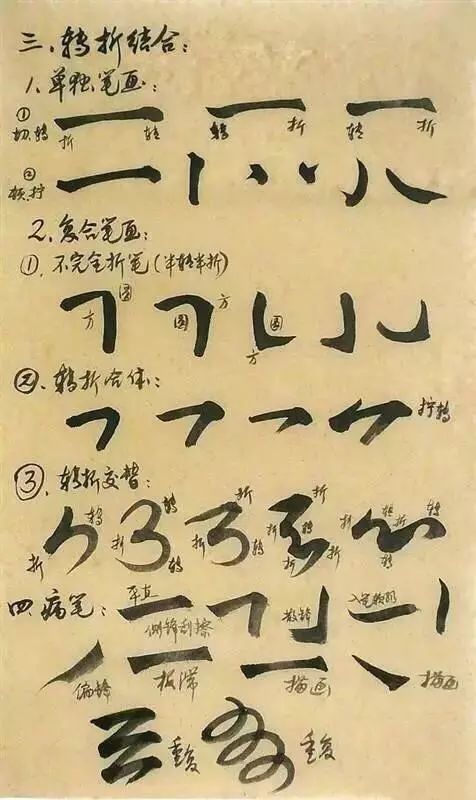 三、转折结合：
1.单独笔画：
① 切、转 折 转 转 折 转 折
② 顿、拧
2.复合笔画：
①、不完全折笔（半转半折）
方 圆 圆 方 方 圆
②、转折合体：
拧转
③、转折交替：
折 转 折 转 转 折 折 转 折 折 转 折 折 转 折 转 转
四、病笔：
平直 侧锋刮擦 散锋 入笔顿颤
偏锋 板滞 描画 描画
重复 重复